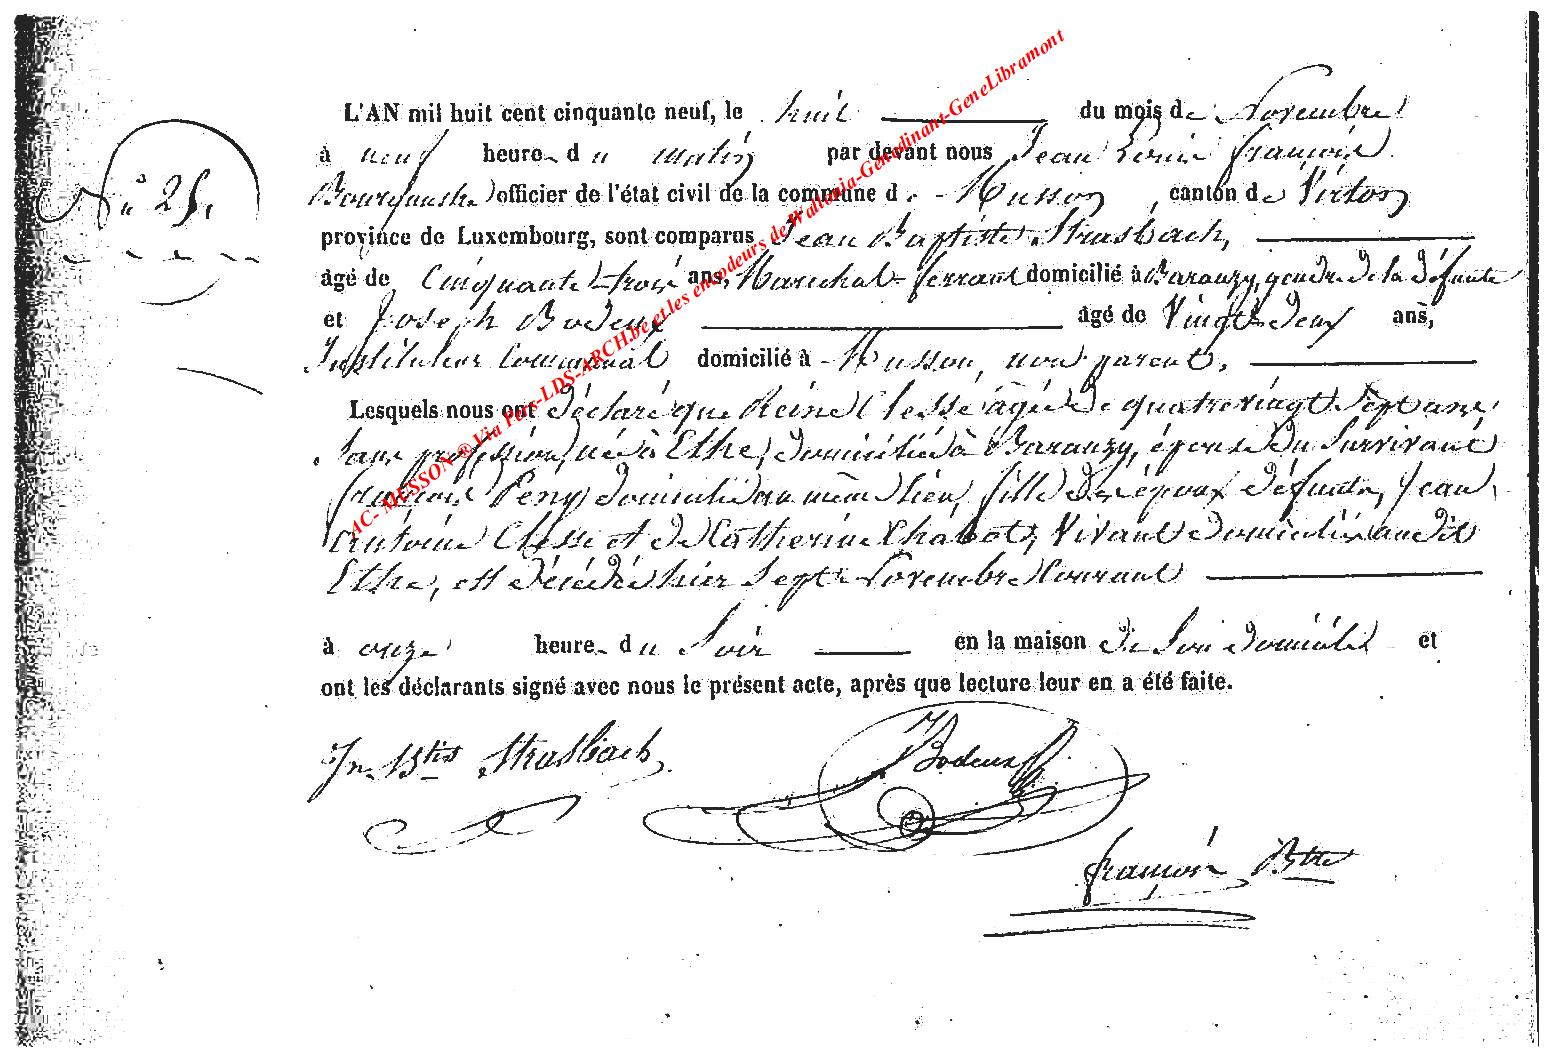 L'AN mil huit cent cinquante neuf, le huit du mois de Novembre
à neuf heure du matin par devant nous Jean Louis François
officier de l'état civil de la commune de Musson, canton de Virton
province de Luxembourg, sont comparus Jean Baptiste Strasbach,
âgé de Cinquante-trois ans, Maréchal-ferrant domicilié à Baranzy, gendre de la défunte
et Joseph Bodeux âgé de Vingt deux ans,
Instituteur Communal domicilié à Musson, non parent,
Lesquels nous ont Déclaré que Reine Clesse âgée de quatre vingt Sept ans,
Sans profession, née à Ethe, domiciliée à Baranzy, épouse du Survivant
François Peny domicilié au même lieu, fille des époux défunts, Jean
Antoine Clesse et de Catherine Chabot, Vivant domiciliés au dit
Ethe, est décédée hier Sept Novembre Courant
à onze heure du Soir en la maison de Son domicile et
ont les déclarants signé avec nous le présent acte, après que lecture leur en a été faite.
Jn Bte Strasbach
JBodeux
François Btre
AC- MUSSON ® Via Pays-LDS-ARCH.be et les encodeurs de Wallonia-Genedinant-GeneLibramont